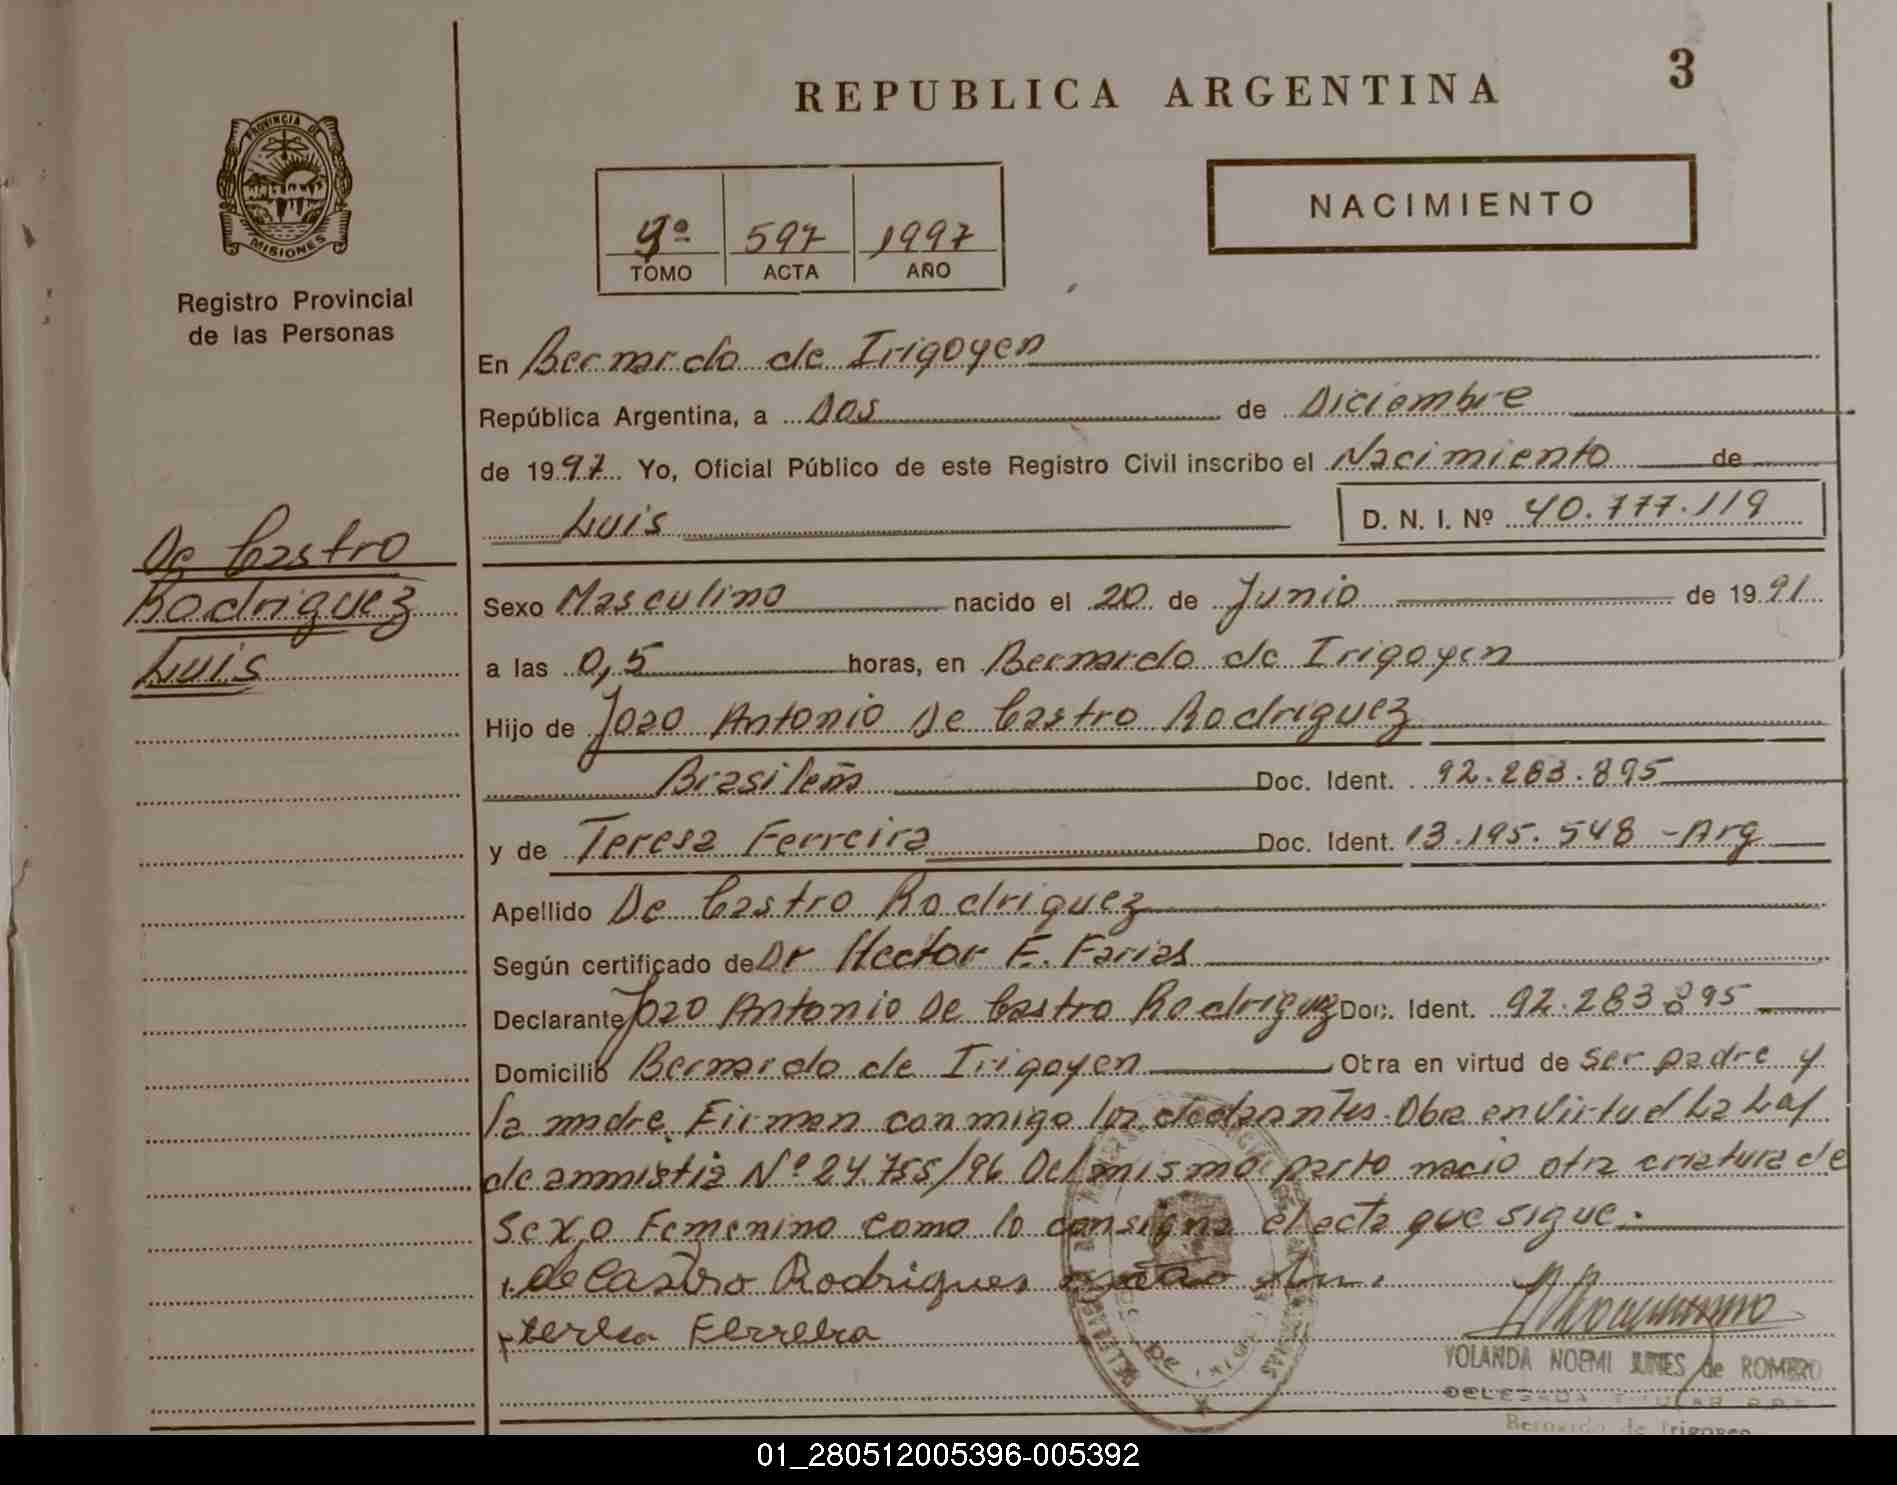 REPUBLICA ARGENTINA
3
PROVINCIA DE
MISIONES
Registro Provincial
de las Personas
NACIMIENTO
597 1997
TOMO ACTA AÑO
En Bernardo de Irigoyen
República Argentina, a Dos de Diciembre
de 1997 Yo, Oficial Público de este Registro Civil inscribo el Nacimiento de
Luis D. N. I. Nº 40.777.119
De Castro
Rodriguez
Luis
Sexo Masculino nacido el 20 de Junio de 1991
a las 0,5 horas, en Bernardo de Irigoyen
Hijo de Joao Antonio De Castro Rodriguez
Brasileña Doc. Ident. 92.283.895
y de Teresa Ferreira Doc. Ident. 13.195.548 - Arg
Apellido De Castro Rodriguez
Según certificado de Dr Hector E. Farias
Declarante Joao Antonio De Castro Rodriguez Doc. Ident. 92.283.895
Domicilio Bernardo de Irigoyen Otra en virtud de Ser padre y
la madre. Firman conmigo los declarantes. Obra en Virtud La Ley
de anmistia Nº 24.755/96 Del mismo parto nacio otra criatura de
Sexo Femenino como lo consigna el acta que sigue.
de Castro Rodrigues
teresa Ferreira
YOLANDA NOEMI de ROMERO
DELEGADA TITULAR
Bernardo de Irigoyen
01_280512005396-005392